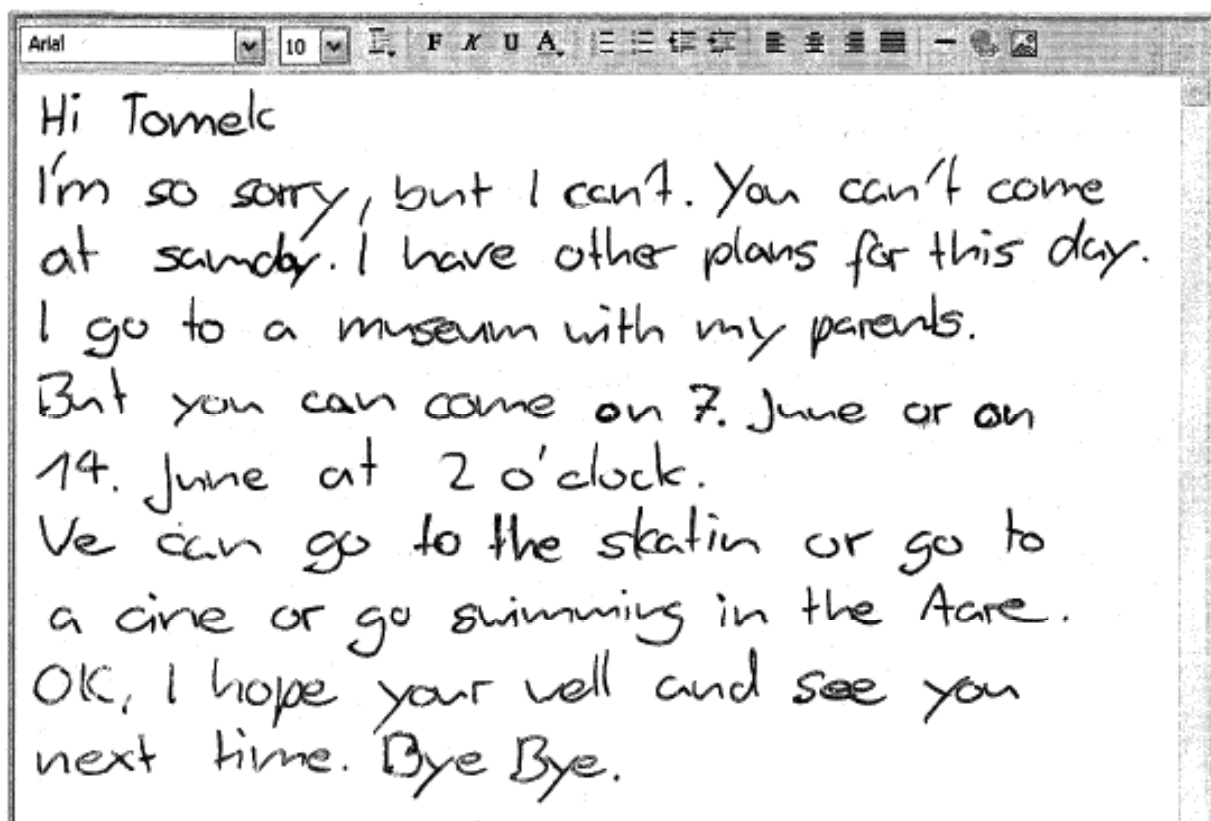 Arial 10 F K U A
Hi Tomek
I'm so sorry, but I can't. You can't come
at samday. I have other plans for this day.
I go to a museum with my parents.
But you can come on 7. June or on
14. June at 2 o'clock.
Ve can go to the skatin or go to
a cine or go swimming in the Aare.
OK, I hope your vell and see you
next time. Bye Bye.